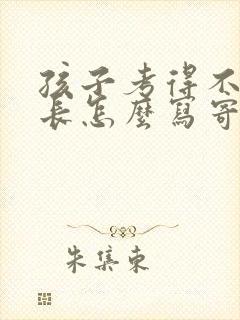 孩子考得不
長怎麼寫寄
朱集東